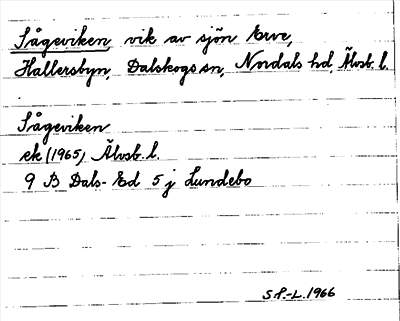 Sågeviken vik av sjön Erve,
Hallersbyn, Dalskogs sn, Nordals hd, Älvsb. l.
Sågeviken
ek (1965) Älvsb. l.
9 B Dals-Ed 5 j Lundebo
S.P.-L. 1966